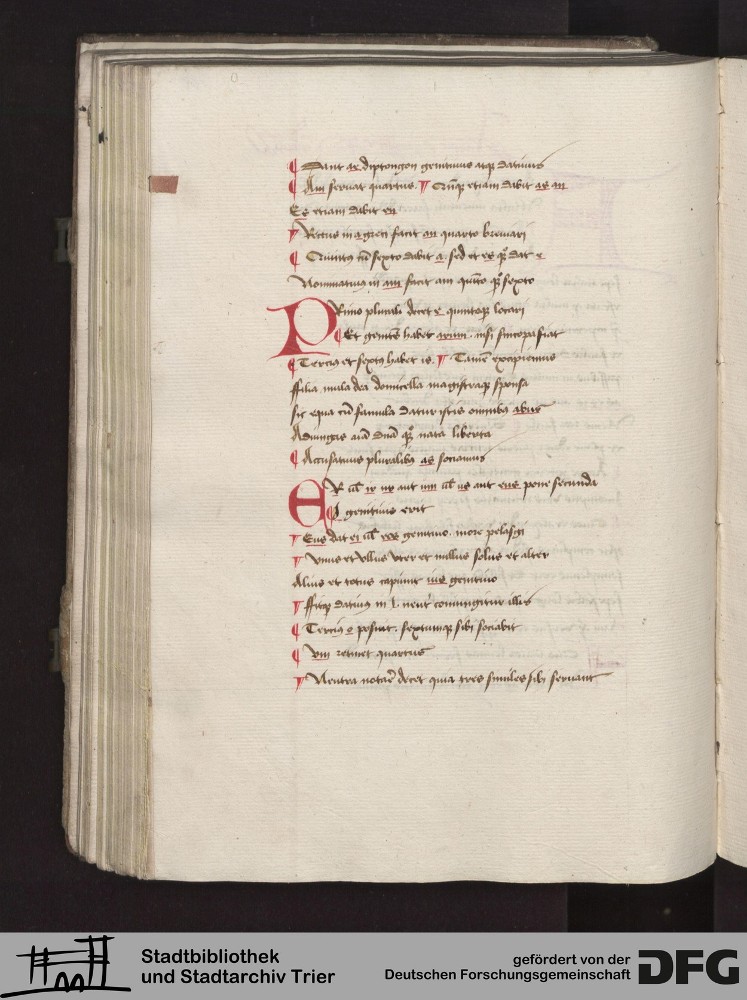 ¶ Dant ae diptongon genitiuus atq datiuus
¶ Am seruat quartus. ¶ Cunq etiam dabit as an
Es etiam dabit en
¶ Rectus in a greci facit an quarto breuiari
¶ Quintus cū sexto dabit a. sed et es qͥ dat e
Nominatiuus in am facit am quīto qͥ sexto
PRimo plurali decet e quintoqꝫ locari
¶ Et genitꝰ habet arum. nisi sincopa fiat
¶ Tercius et sextus habet is. ¶ Tamē excipiemus
ffilia mula dea domicella magistraqꝫ sponsa
sic equa cū famula datur istis omnibꝰ abus
Adiungis aīā dnā qꝫ nata liberta
¶ Accusatiuus pluralibꝰ as sociamus
ER uel ir ur aut um uel us aut eus pone secunda
¶ I genitiuus erit
¶ Eus dat ei uel eos genitiuo. more pelasgi
¶ Vnus et Vllus Vter et nullus solus et alter
Alius et totus capiunt ius genitiuo
¶ ffitqꝫ datiuus in i neut coniungitur illis
¶ Tercius o ponit. sextumqꝫ sibi sociabit
¶ Vm retinet quartus
¶ Neutra notare decet quia tres similes sibi seruant
Stadtbibliothek
und Stadtarchiv Trier
gefördert von der
Deutschen Forschungsgemeinschaft
DFG